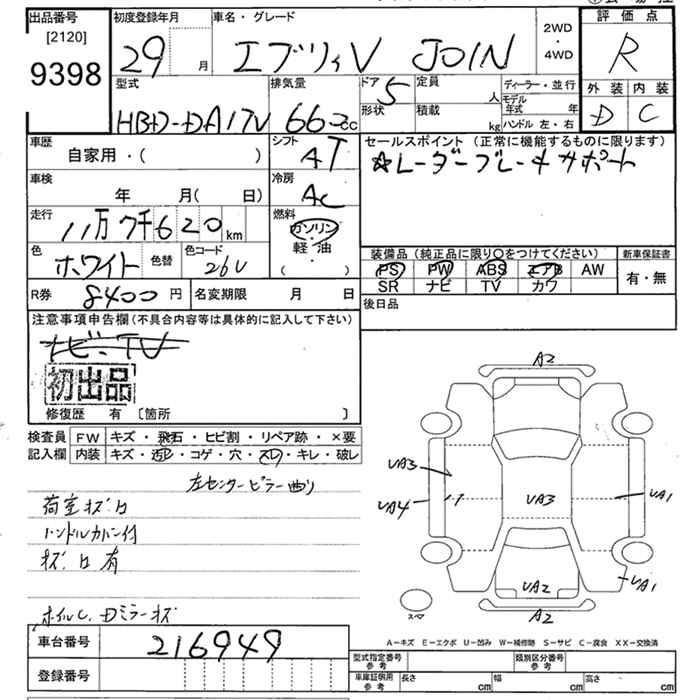 出品番号
[2120]
9398
初度登録年月
29 月
車名・グレード
エブリィV JOIN
2WD
・
4WD
評価点
R
外装 内装
D C
型式
HBD-DA17V
排気量
660cc
ドア
5
形状
定員
人
積載
kg
ディーラー・並行
モデル年式 年
ハンドル 左・右
車歴
自家用・( )
シフト
AT
車検
年 月( 日)
冷房
AC
走行
11万7千620km
燃料
ガソリン
軽・油
( )
色
ホワイト
色替
色コード
26U
R券
8400円
名変期限 月 日
セールスポイント (正常に機能するものに限ります)
☆レーダーブレーキサポート
装備品 (純正品に限り〇をつけてください)
PS PW ABS エアB AW
SR ナビ TV カワ
新車保証書
有・無
後日品
注意事項申告欄(不具合内容等は具体的に記入して下さい)
ナビ・TV
初出品
修復歴 有 〔箇所 〕
検査員記入欄
FW キズ・飛石・ヒビ割・リペア跡・×要
内装 キズ・汚レ・コゲ・穴・スレ・キレ・破レ
左センターピラー曲り
荷室キズ・凹
ハンドルカバー付
キズ・凹有
ホイルC、Dミラーキズ
車台番号
216949
登録番号
A2
UA3
UA4
UA3
UA1
UA2
UA1
A2
スペア
A－キズ E－エクボ U－凹み W－補修跡 S－サビ C－腐食 XX－交換済
型式指定番号
参考
類別区分番号
参考
車庫証明用
参考
長さ cm
幅 cm
高さ cm